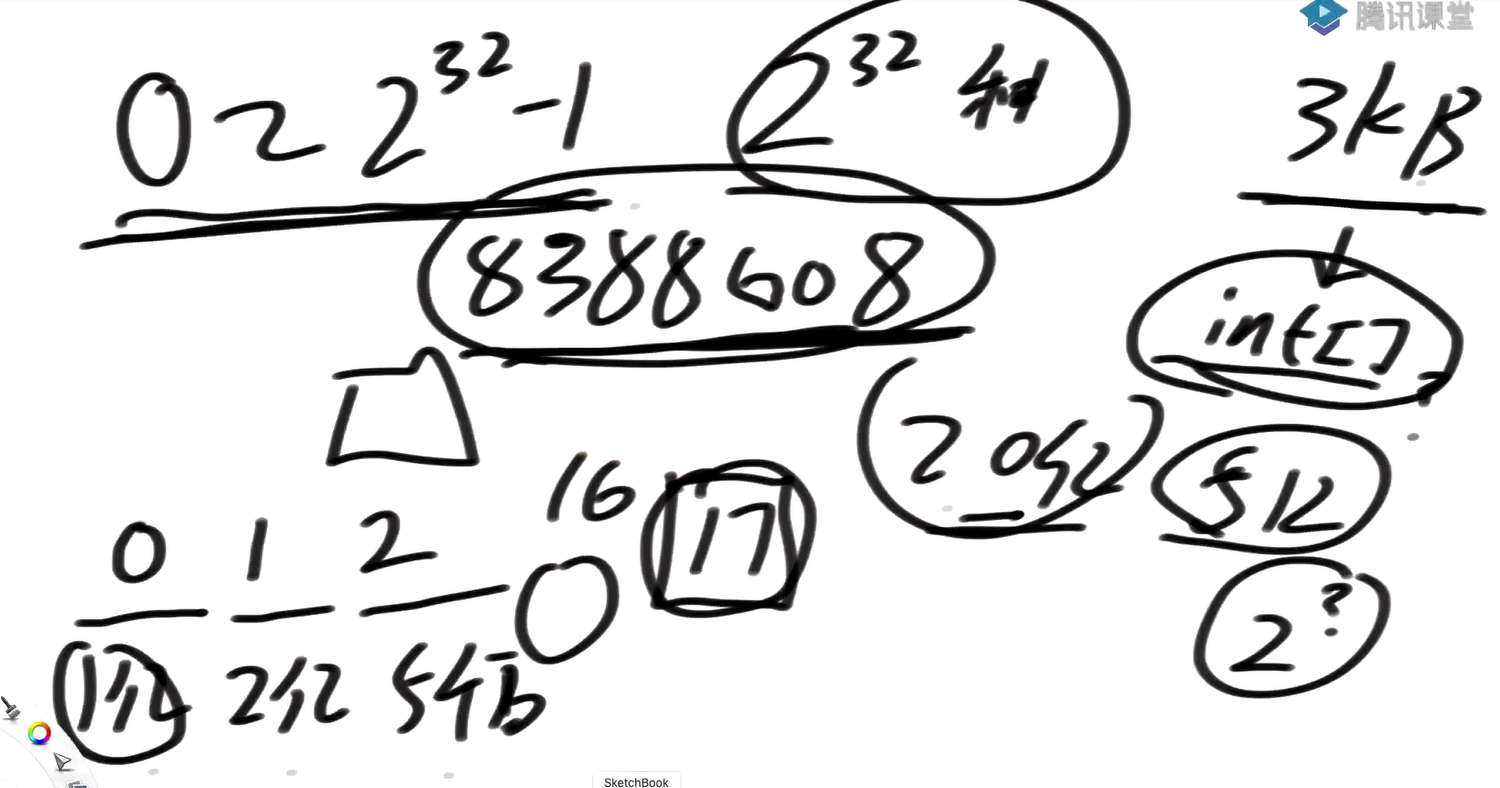 腾讯课堂
0~2^32-1 2^32种 3kB
8388608
int[]
20亿
512
2^?
16 17
0 1 2
1亿 2亿 5千万
SketchBook